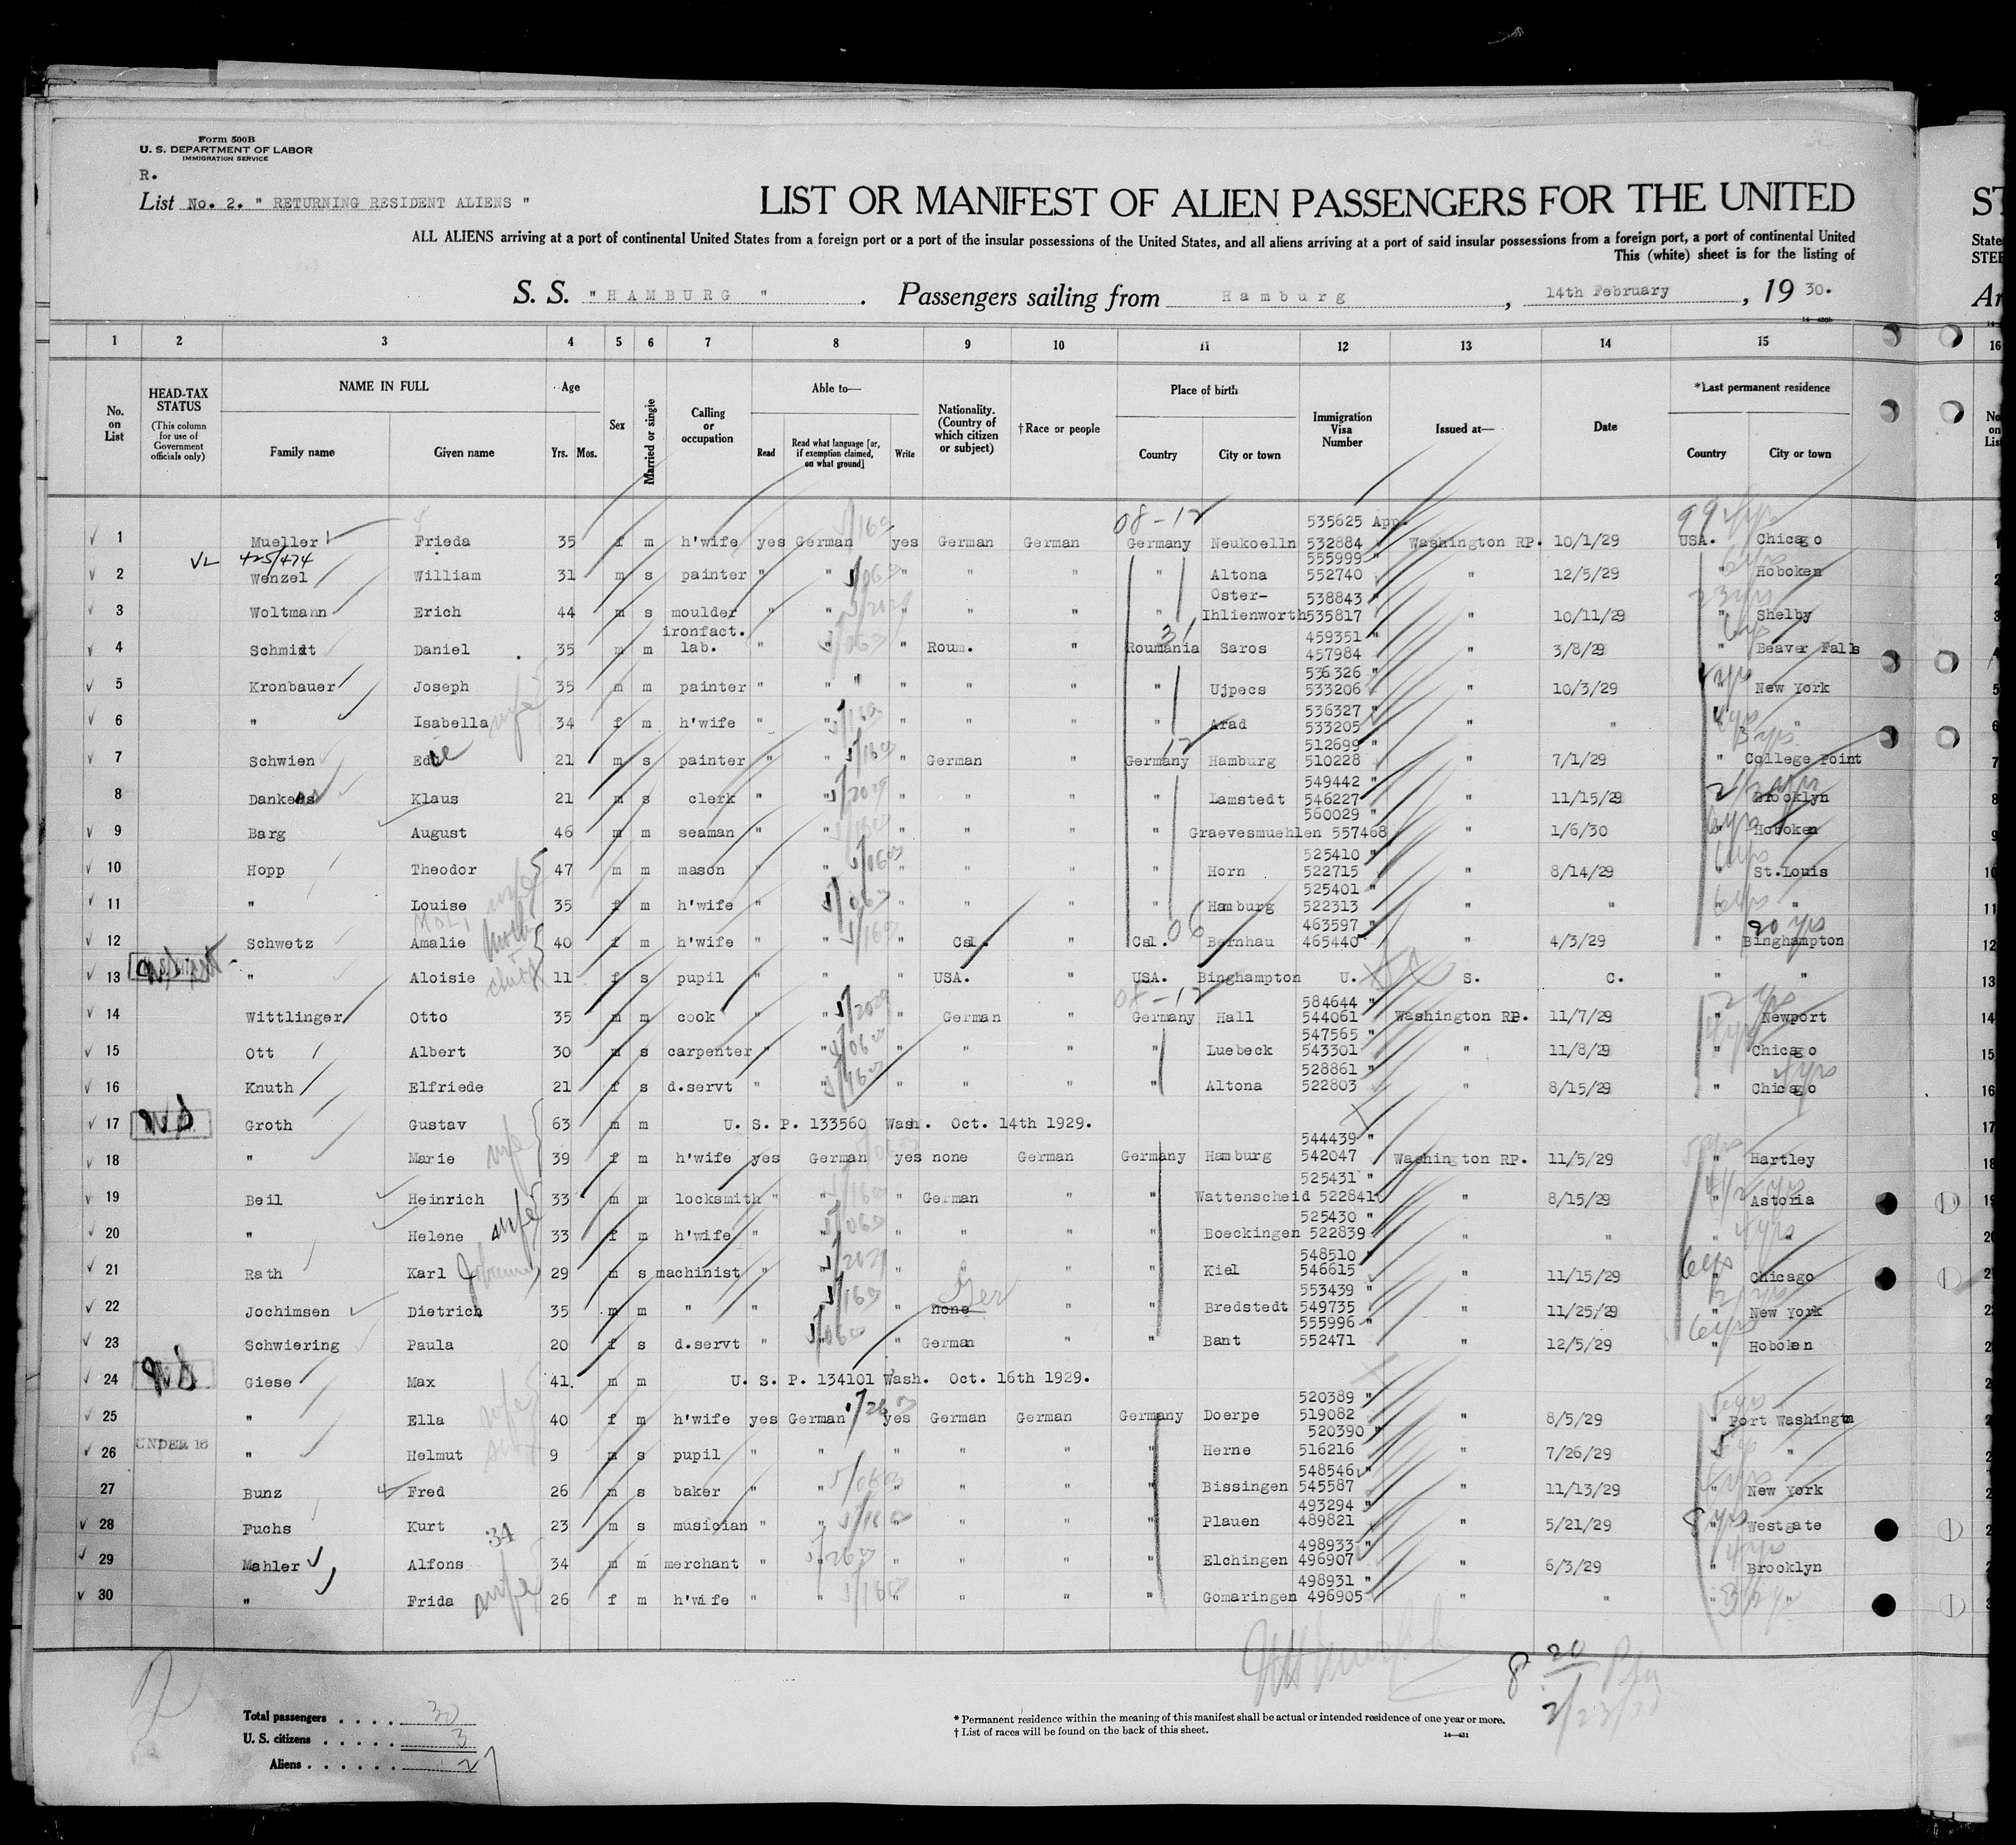 Form 500B
U. S. DEPARTMENT OF LABOR
IMMIGRATION SERVICE
R.
List No. 2. " RETURNING RESIDENT ALIENS "
LIST OR MANIFEST OF ALIEN PASSENGERS FOR THE UNITED
ALL ALIENS arriving at a port of continental United States from a foreign port or a port of the insular possessions of the United States, and all aliens arriving at a port of said insular possessions from a foreign port, a port of continental United
This (white) sheet is for the listing of
S. S. " HAMBURG " . Passengers sailing from Hamburg , 14th February , 19 30.
1 2 3 4 5 6 7 8 9 10 11 12 13 14 15 16
No. on List
HEAD-TAX STATUS (This column for use of Government officials only)
NAME IN FULL Family name Given name
Age Yrs. Mos.
Sex
Married or single
Calling or occupation
Able to— Read Read what language [or, if exemption claimed, on what ground] Write
Nationality. (Country of which citizen or subject)
†Race or people
Place of birth Country City or town
Immigration Visa Number
Issued at—
Date
*Last permanent residence Country City or town
08-12 535625 App.
1 Mueller Frieda 35 f m h'wife yes German yes German German Germany Neukoelln 532884 Washington RP. 10/1/29 USA. Chicago
425/474 555999 "
2 Wenzel William 31 m s painter " " " " " " Altona 552740 " 12/5/29 " Hoboken
Oster- 538843 "
3 Woltmann Erich 44 m s moulder " " " " " " Ihlienworth 535817 " 10/11/29 " Shelby
ironfact. 459351 "
4 Schmidt Daniel 35 m m lab. " " " Roum. " Roumania Saros 457984 " 3/8/29 " Beaver Falls
536326 "
5 Kronbauer Joseph 35 m m painter " " " " " " Ujpecs 533206 " 10/3/29 " New York
536327 "
6 " Isabella wife 34 f m h'wife " " " " " " Arad 533205 " " " "
512699 "
7 Schwien Edie 21 m s painter " " " German " Germany Hamburg 510228 " 7/1/29 " College Point
549442 "
8 Dankers Klaus 21 m s clerk " " " " " " Lamstedt 546227 " 11/15/29 " Brooklyn
560029 "
9 Barg August 46 m m seaman " " " " " " Graevesmuehlen 557468 " 1/6/30 " Hoboken
525410 "
10 Hopp Theodor 47 m m mason " " " " " " Horn 522715 " 8/14/29 " St.Louis
525401 "
11 " Louise wife 35 f m h'wife " " " " " " Hamburg 522313 " " " "
463597 "
12 Schwetz Amalie 40 f m h'wife " " " Csl. " Csl. 06 Bernhau 465440 " 4/3/29 " Binghampton
13 " Aloisie child 11 f s pupil " " " USA. " USA. Binghampton U. S. C. " "
08-12 584644 "
14 Wittlinger Otto 35 m m cook " " " German " Germany Hall 544061 Washington RP. 11/7/29 " Newport
547565 "
15 Ott Albert 30 m s carpenter " " " " " " Luebeck 543301 " 11/8/29 " Chicago
528861 "
16 Knuth Elfriede 21 f s d.servt " " " " " " Altona 522803 " 8/15/29 " Chicago
17 Groth Gustav 63 m m U. S. P. 133560 Wash. Oct. 14th 1929.
544439 "
18 " Marie wife 39 f m h'wife yes German yes none German Germany Hamburg 542047 Washington RP. 11/5/29 " Hartley
525431 "
19 Beil Heinrich 33 m m locksmith " " " German " " Wattenscheid 522841 " 8/15/29 " Astoria
525430 "
20 " Helene wife 33 f m h'wife " " " " " " Boeckingen 522839 " " " "
548510 "
21 Rath Karl 29 m s machinist " " " " " " Kiel 546615 " 11/15/29 " Chicago
553439 "
22 Jochimsen Dietrich 35 m m " " " " none Ger " " Bredstedt 549735 " 11/25/29 " New York
555996 "
23 Schwiering Paula 20 f s d.servt " " " German " " Bant 552471 " 12/5/29 " Hoboken
24 Giese Max 41. m m U. S. P. 134101 Wash. Oct. 16th 1929.
520389 "
25 " Ella wife 40 f m h'wife yes German yes German German Germany Doerpe 519082 " 8/5/29 " Port Washingtn
520390 "
26 UNDER 16 " Helmut 9 m s pupil " " " " " " Herne 516216 " 7/26/29 " "
548546 "
27 Bunz Fred 26 m s baker " " " " " " Bissingen 545587 " 11/13/29 " New York
493294 "
28 Fuchs Kurt 23 m s musician " " " " " " Plauen 489821 " 5/21/29 " Westgate
34 498933 "
29 Mahler Alfons 34 m m merchant " " " " " " Elchingen 496907 " 6/3/29 " Brooklyn
498931 "
30 " Frida wife 26 f m h'wife " " " " " " Gomaringen 496905 " " " "
Total passengers . . . . 30
U. S. citizens . . . . . 3
Aliens . . . . . . 27
* Permanent residence within the meaning of this manifest shall be actual or intended residence of one year or more.
† List of races will be found on the back of this sheet.
14—431
2/23/30